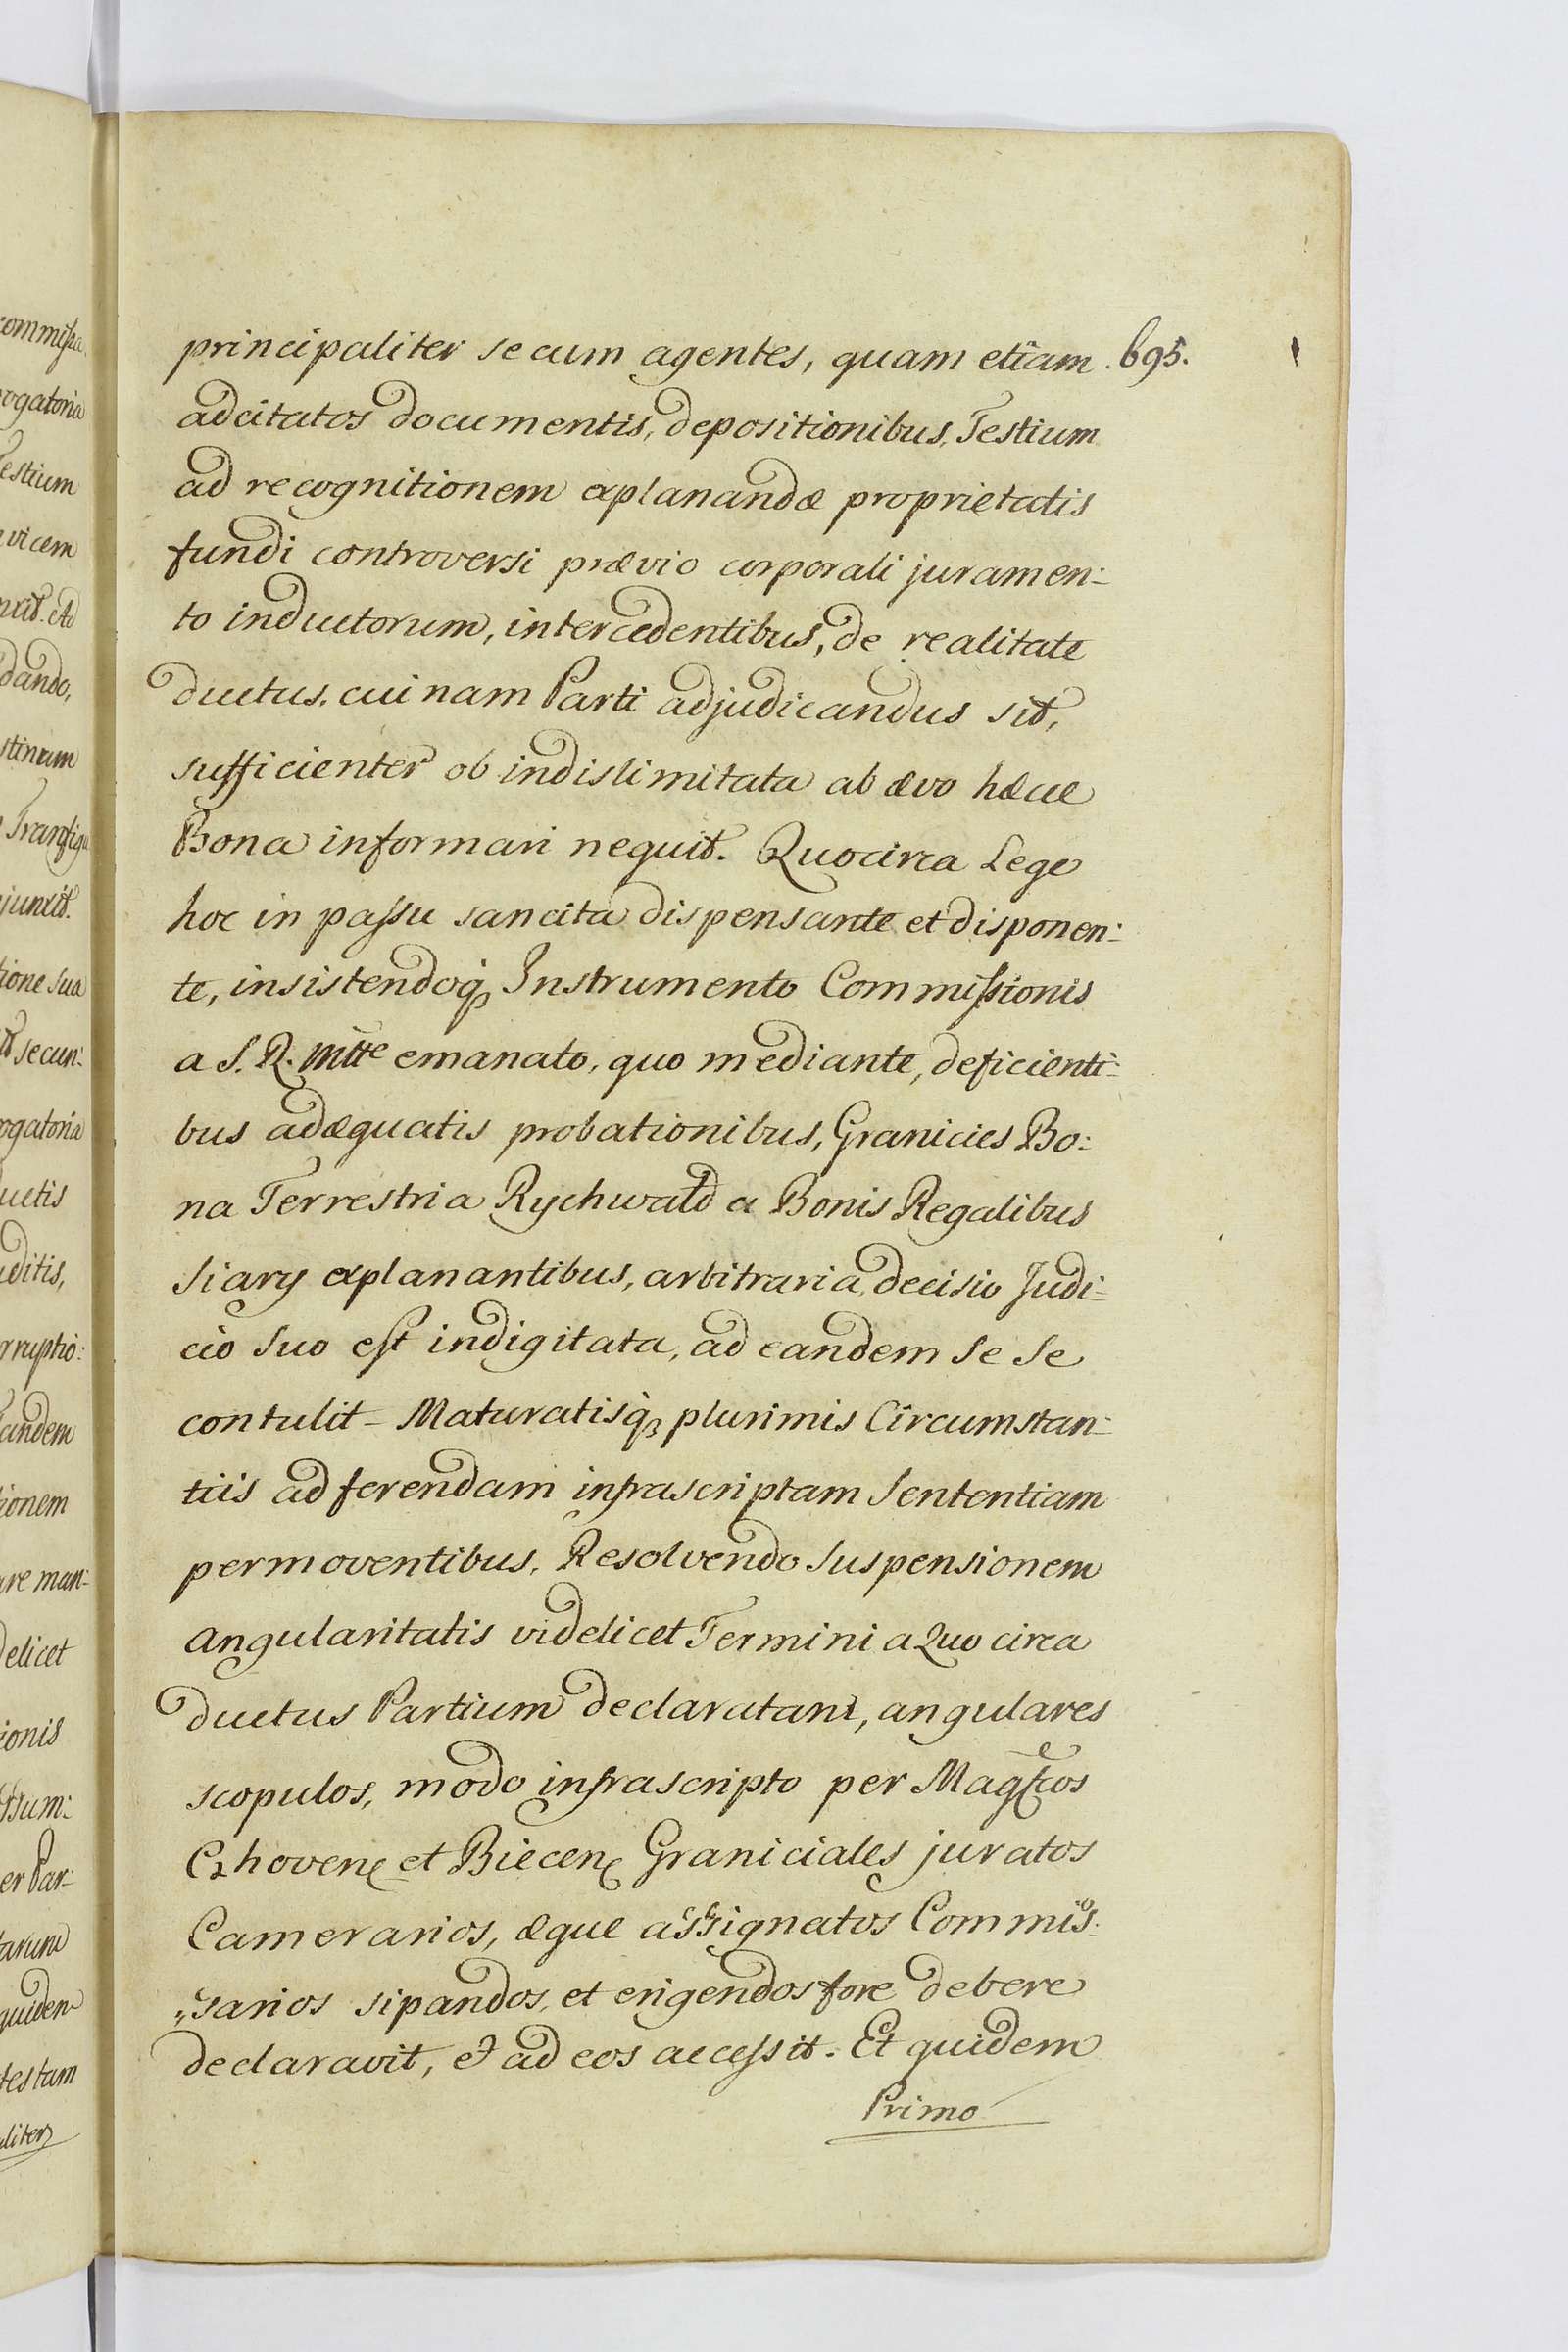 principaliter se cum agentes, quam etiam . 695.
adcitatos documentis, depositionibus, Testium
ad recognitionem explanandæ proprietatis
fundi controversi prævio corporali juramen:
to inductorum, intercedentibus, de realitate
ductus, cui nam Parti adjudicandus sit,
sufficienter ob indislimitata ab ævo hæcce
Bona informari nequit. Quocirca Lege
hoc in passu sancita dispensante et disponen:
te, insistendoq, Instrumento Commissionis
a S. R. Mtte emanato, quo mediante, deficienti:
bus adæquatis probationibus, Granicies Bo:
na Terrestria Rychwald a Bonis Regalibus
Siary explanantibus, arbitraria decisio Judi:
cio Suo est indigitata, ad eandem Se Se
contulit - Maturatisq, plurimis Circumstan:
tiis ad ferendam infrascriptam Sententiam
permoventibus, Resolvendo Suspensionem
angularitatis videlicet Termini a Quo circa
ductus Partium declaratam, angulares
scopulos, modo infrascripto per Magcos
Czhoven et Biecen Graniciales juratos
Camerarios, æque assignatos Commis:
sarios sipandos, et erigendos fore debere
declaravit, et ad eos accessit. Et quidem
Primo
commissa
rogatoria
Testium
vicem
dando,
junxit.
tione sua
secun:
rogatoria
uctis
editis,
rruptio:
andem
tionem
re man:
delicet
ionis
er Par:
tarum
quidem
testam
aliter